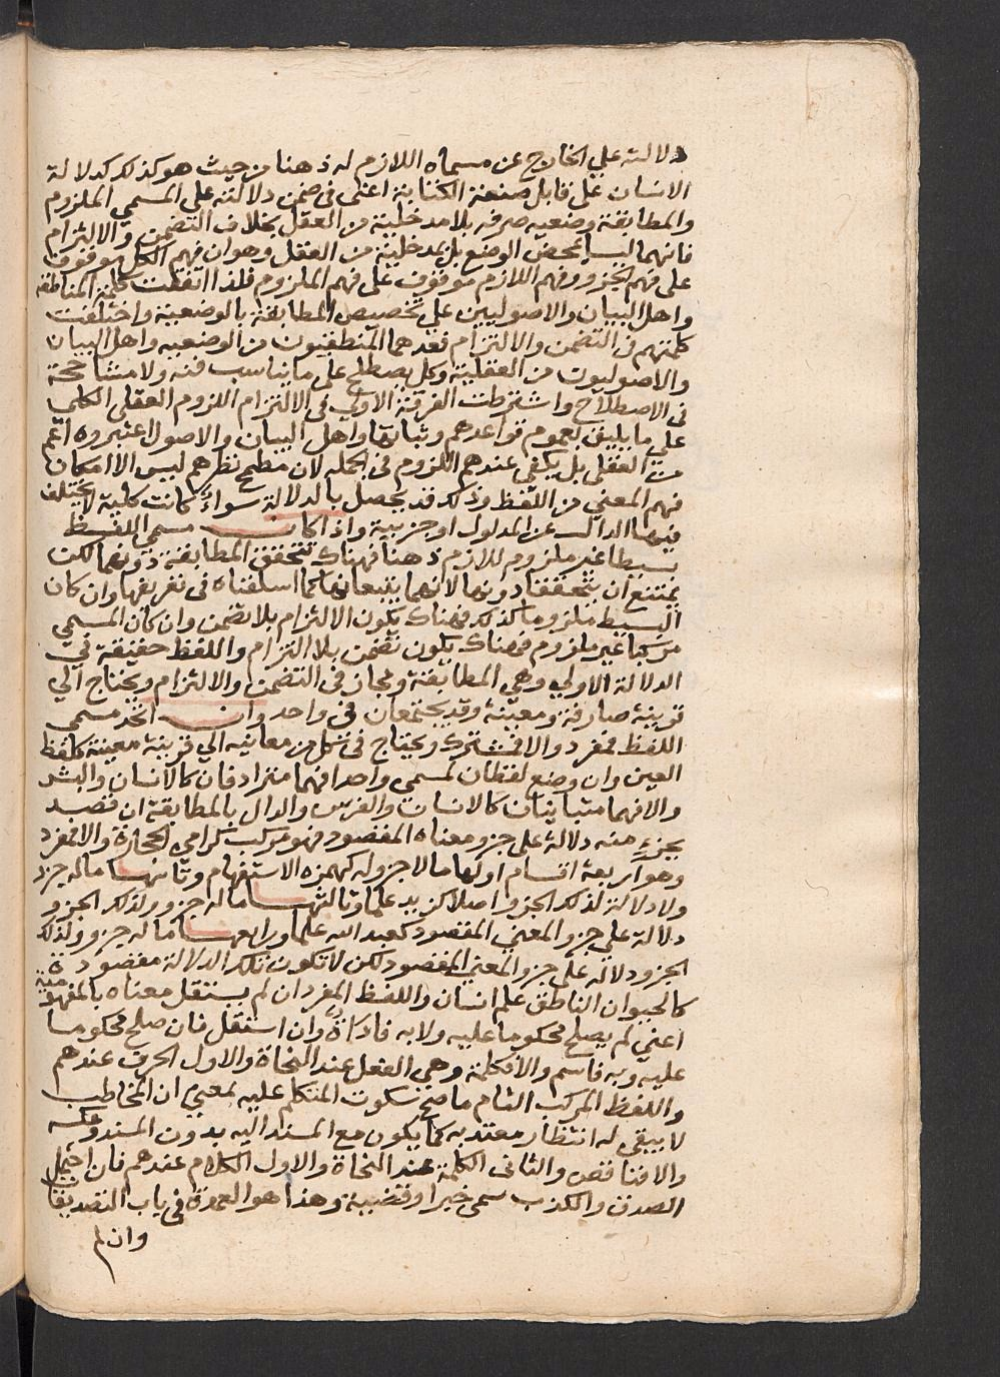 دلالته علي الخارج عن مسماه اللازم له ذهنا من حيث هو كذلك كدلالة
الانسان علي قابل صنعة الكتابة اعني في ضمن دلالته علي المسمي الملزوم
والمطابقة وضعيه صرفه بلا مدخلية من العقل بخلاف التضمن والالتزام
فانهما ليسا بمحض الوضع بل بمدخلية من العقل وهو ان فهم الكل موقوف
علي فهم الجزو وفهم اللازم موقوف علي فهم الملزوم فلذا اتفقت كلمة المناطقه
واهل البيان والاصوليين علي تخصيص المطابقة بالوضعية واختلفت
كلمتهم في التضمن والالتزام فعدهما المنطقيون من الوضعيه واهل البيان
والاصوليون من العقلية وكل يصطلح علي ما يناسب فنه ولا مشاححة
في الاصطلاح واشترطت الفرقة الاولي في الالتزام اللزوم العقلي الكلي
علي ما يليق بعموم قواعدهم وثباتها واهل البيان والاصول اعتبروه اعم
من العقلي بل يكفي عندهم اللزوم في الجمله لان مطمح نظرهم ليس الا امكان
فهم المعني من اللفظ وذلك قد يحصل بالدلالة سواء كانت كلية لا يختلف
فيها الدال عن المدلول او جزيية واذا كان مسمي اللفظ
بسيطا غير ملزوم للازم ذهنا فهناك تتحقق المطابقة دونهما لكن
يمتنع ان يتحققا دونها لانهما يتبعانها كما اسلفناه في تعريفها وان كان
البسيط ملزوما كذلك فهناك يكون الالتزام بلا تضمن وان كان المسمي
مركبا غير ملزوم فهناك يكون تضمن بلا التزام واللفظ حقيقة في
الدلالة الاولي وهي المطابقة ومجاز في التضمن والالتزام ويحتاج الي
قرينة صارفة ومعينة وقد يجتمعان في واحد وان اتحد مسمي
اللفظ فمفرد والا فمشترك ويحتاج في كل من معانيه الي قرينة معينة كلفظ
العين وان وضع لفظان لمسمي واحد فهما مترادفان كالانسان والبشر
والا فهما متباينان كالانسان والفرس والدال بالمطابقة ان قصد
بجزء منه دلالة علي جزو معناه المقصود فهو مركب كرامي الحجارة والا فمفرد
وهو اربعة اقسام اولها ما لا جزو له كهمزه الاستفهام وثانيها ماله جزو
ولا دلالة لذلك الجزو اصلا كزيد علما وثالثها ماله جزو ولذلك الجزو
دلالة علي جزو المعني المقصود كعبد الله علما ورابعها ماله جزو ولذلك
الجزو دلاله علي جزو المعني المقصود لكن لا تكون تلك الدلالة مقصودة
كالحيوان الناطق علم انسان واللفظ المفرد ان لم يستقل معناه بالمفهومية
اعني لم يصلح محكوما عليه ولا به فاداة وان استقل فان صلح محكوما
عليه وبه فاسم والا فكلمة وهي الفعل عند النحاة والاول الحرف عندهم
واللفظ المركب التام ما صح سكوت المتكلم عليه لمعني ان المخاطب
لا يبقي له انتظار معتد به كما يكون مع المسند اليه بدون المسند وعكسه
والا فناقص والثاني الكلمة عند النحاة والاول الكلام عندهم فان احتمل
الصدق والكذب سمي خبرا وقضية وهذا هو العمدة في باب التصديقا
وان لم